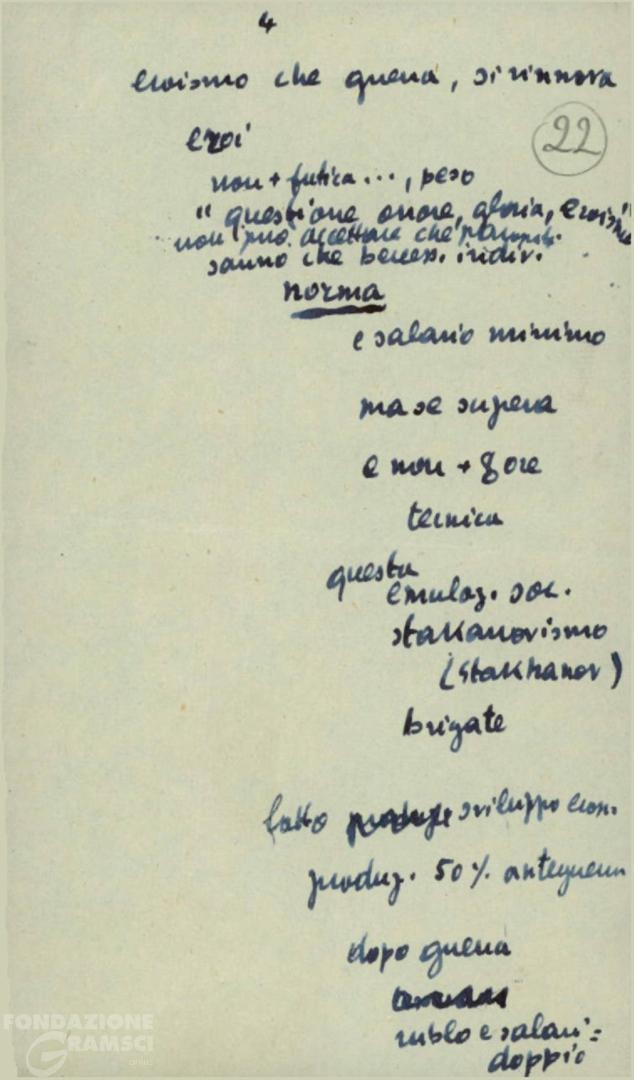 4
eroismo che guerra, si rinnova
eroi
22
non + fatica..., peso
"questione onore, gloria, eroismo"
non può accettare che
sanno che beness. indiv.
norma
e salario minimo
ma se supera
e non + 8 ore
tecnica
questa
emulaz. soc.
stakanovismo
(Stakhanov)
brigate
fatto sviluppo econ.
produz. 50% anteguerra
dopo guerra
rublo e salari =
doppio
FONDAZIONE
GRAMSCI
onlus